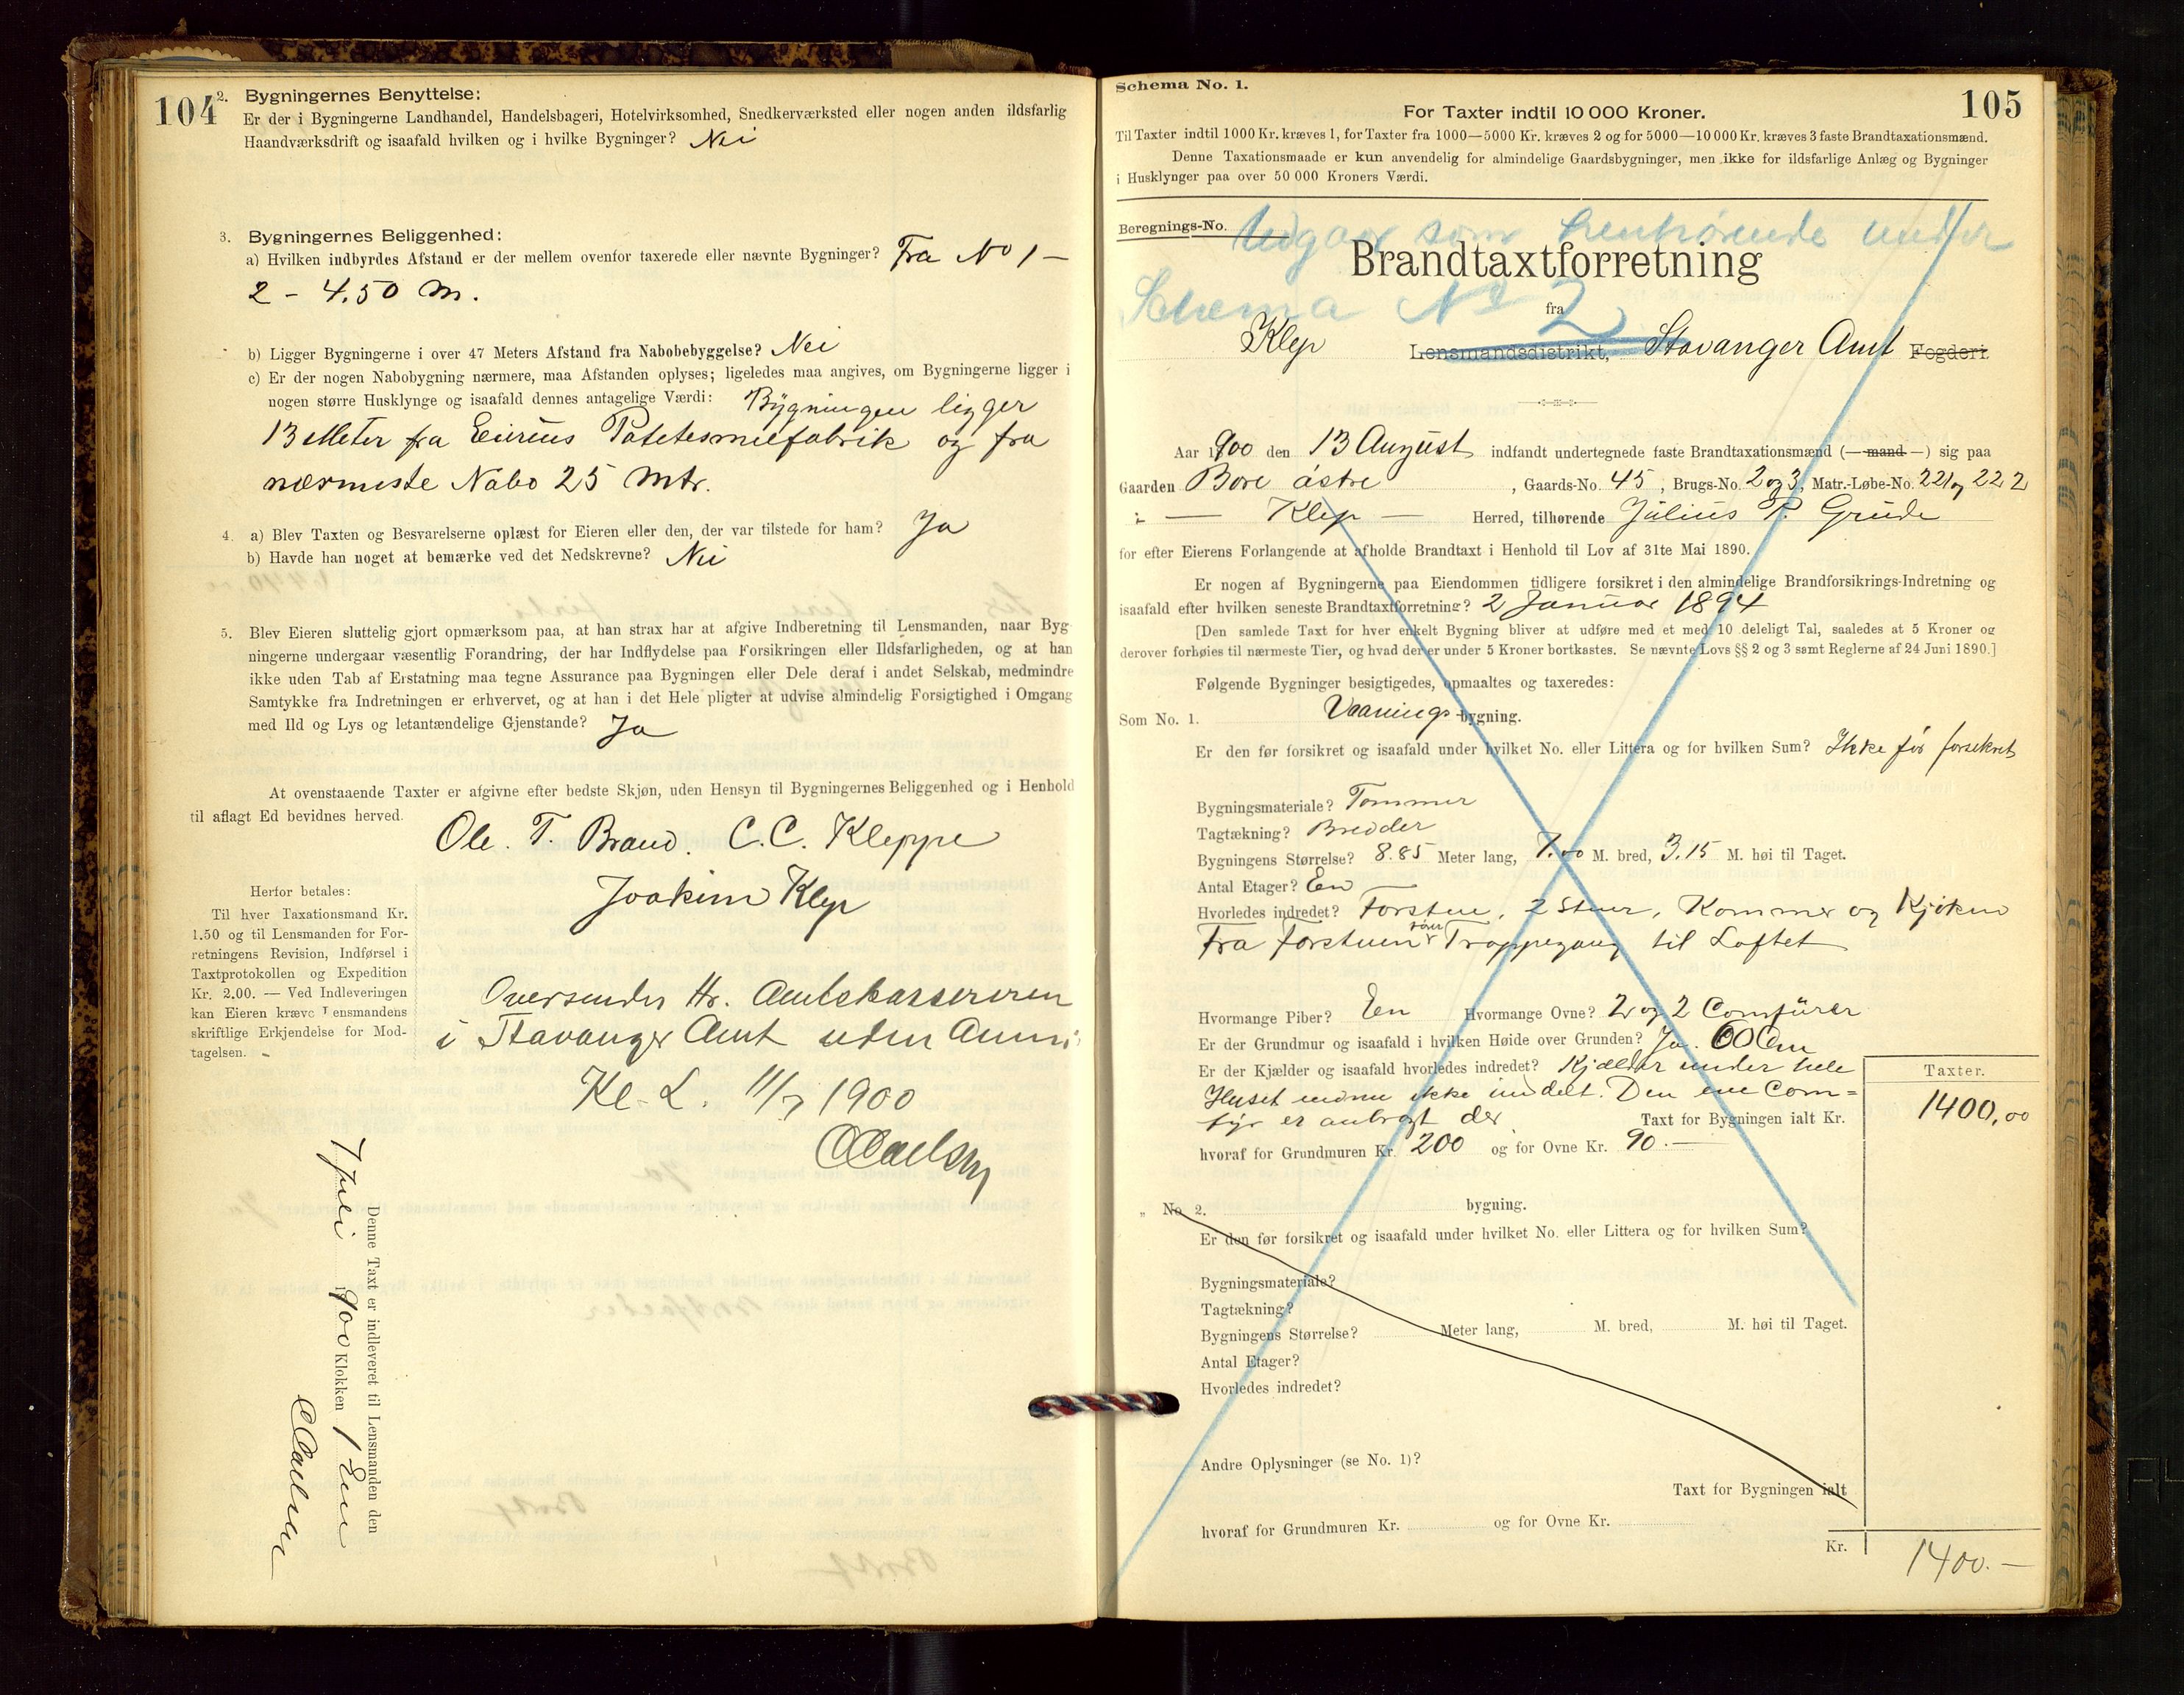 104
2. Bygningernes Benyttelse:
Er der i Bygningerne Landhandel, Handelsbageri, Hotelvirksomhed, Snedkerværksted eller nogen anden ildsfarlig
Haandværksdrift og isaafald hvilken og i hvilke Bygninger? Nei
3. Bygningernes Beliggenhed:
a) Hvilken indbyrdes Afstand er der mellem ovenfor taxerede eller nævnte Bygninger? Fra No 1 –
2 – 4.50 M.
b) Ligger Bygningerne i over 47 Meters Afstand fra Nabobebyggelse? Nei
c) Er der nogen Nabobygning nærmere, maa Afstanden oplyses; ligeledes maa angives, om Bygningerne ligger i
nogen større Husklynge og isaafald dennes antagelige Værdi: Bygningen ligger
13 Meter fra Eierens Potetesmelfabrik og fra
nærmeste Nabo 25 Mtr.
4. a) Blev Taxten og Besvarelserne oplæst for Eieren eller den, der var tilstede for ham? Ja
b) Havde han noget at bemærke ved det Nedskrevne? Nei
5. Blev Eieren sluttelig gjort opmærksom paa, at han strax har at afgive Indberetning til Lensmanden, naar Byg-
ningerne undergaar væsentlig Forandring, der har Indflydelse paa Forsikringen eller Ildsfarligheden, og at han
ikke uden Tab af Erstatning maa tegne Assurance paa Bygningen eller Dele deraf i andet Selskab, medmindre
Samtykke fra Indretningen er erhvervet, og at han i det Hele pligter at udvise almindelig Forsigtighed i Omgang
med Ild og Lys og letantændelige Gjenstande? Ja
At ovenstaaende Taxter er afgivne efter bedste Skjøn, uden Hensyn til Bygningernes Beliggenhed og i Henhold
til aflagt Ed bevidnes herved.
Ole. T. Braud. C.C. Kleppe
Joakim Klep
Herfor betales:
Til hver Taxationsmand Kr.
1.50 og til Lensmanden for For-
retningens Revision, Indførsel i
Taxtprotokollen og Expedition
Kr. 2.00. — Ved Indleveringen
kan Eieren kræve Lensmandens
skriftlige Erkjendelse for Mod-
tagelsen.
Oversendes Hr. Amtskassereren
i Stavanger Amt uden Anm:
Kl. L. 11/7 1900
Denne Taxt er indleveret til Lensmanden den
7 Juli 1900 Klokken 1 Em
105
Schema No. 1.
For Taxter indtil 10 000 Kroner.
Til Taxter indtil 1000 Kr. kræves 1, for Taxter fra 1000—5000 Kr. kræves 2 og for 5000—10 000 Kr. kræves 3 faste Brandtaxationsmænd.
Denne Taxationsmaade er kun anvendelig for almindelige Gaardsbygninger, men ikke for ildsfarlige Anlæg og Bygninger
i Husklynger paa over 50 000 Kroners Værdi.
Beregnings-No.
Udgaar som henhørende under
Brandtaxtforretning
Schema No 2
fra
Klep Lensmandsdistrikt, Stavanger Amt Fogderi
Aar 1900 den 13 August indfandt undertegnede faste Brandtaxationsmænd (— mand —) sig paa
Gaarden Bore østre, Gaards-No. 45, Brugs-No. 2 og 3, Matr.-Løbe-No. 221 og 222
i — Klep — Herred, tilhørende Julius P. Grude
for efter Eierens Forlangende at afholde Brandtaxt i Henhold til Lov af 31te Mai 1890.
Er nogen af Bygningerne paa Eiendommen tidligere forsikret i den almindelige Brandforsikrings-Indretning og
isaafald efter hvilken seneste Brandtaxtforretning? 2 Januar 1894
[Den samlede Taxt for hver enkelt Bygning bliver at udføre med et med 10 deleligt Tal, saaledes at 5 Kroner og
derover forhøies til nærmeste Tier, og hvad der er under 5 Kroner bortkastes. Se nævnte Lovs §§ 2 og 3 samt Reglerne af 24 Juni 1890.]
Følgende Bygninger besigtigedes, opmaaltes og taxeredes:
Som No. 1. Vaanings bygning.
Er den før forsikret og isaafald under hvilket No. eller Littera og for hvilken Sum? Ikke før forsikret
Bygningsmateriale? Tømmer
Tagtækning? Bredder
Bygningens Størrelse? 8.85 Meter lang, 7.00 M. bred, 3.15 M. høi til Taget.
Antal Etager? En
Hvorledes indredet? Forstue, 2 Stuer, Kammer og Kjøken
Fra Forstuen fører Trappegang til Loftet
Hvormange Piber? En Hvormange Ovne? 2 og 2 Comfürer
Er der Grundmur og isaafald i hvilken Høide over Grunden? Ja. 60 Cm
Er der Kjælder og isaafald hvorledes indredet? Kjælder under hele
Huset endnu ikke inddelt. Den ene Com=
fyr er anbragt der Taxt for Bygningen ialt Kr.
Taxter.
1400,00
hvoraf for Grundmuren Kr. 200 og for Ovne Kr. 90.—
„ No. 2. bygning.
Er den før forsikret og isaafald under hvilket No. eller Littera og for hvilken Sum?
Bygningsmateriale?
Tagtækning?
Bygningens Størrelse? Meter lang, M. bred, M. høi til Taget.
Antal Etager?
Hvorledes indredet?
Andre Oplysninger (se No. 1)?
Taxt for Bygningen ialt
hvoraf for Grundmuren Kr. og for Ovne Kr.
Kr. 1400.—